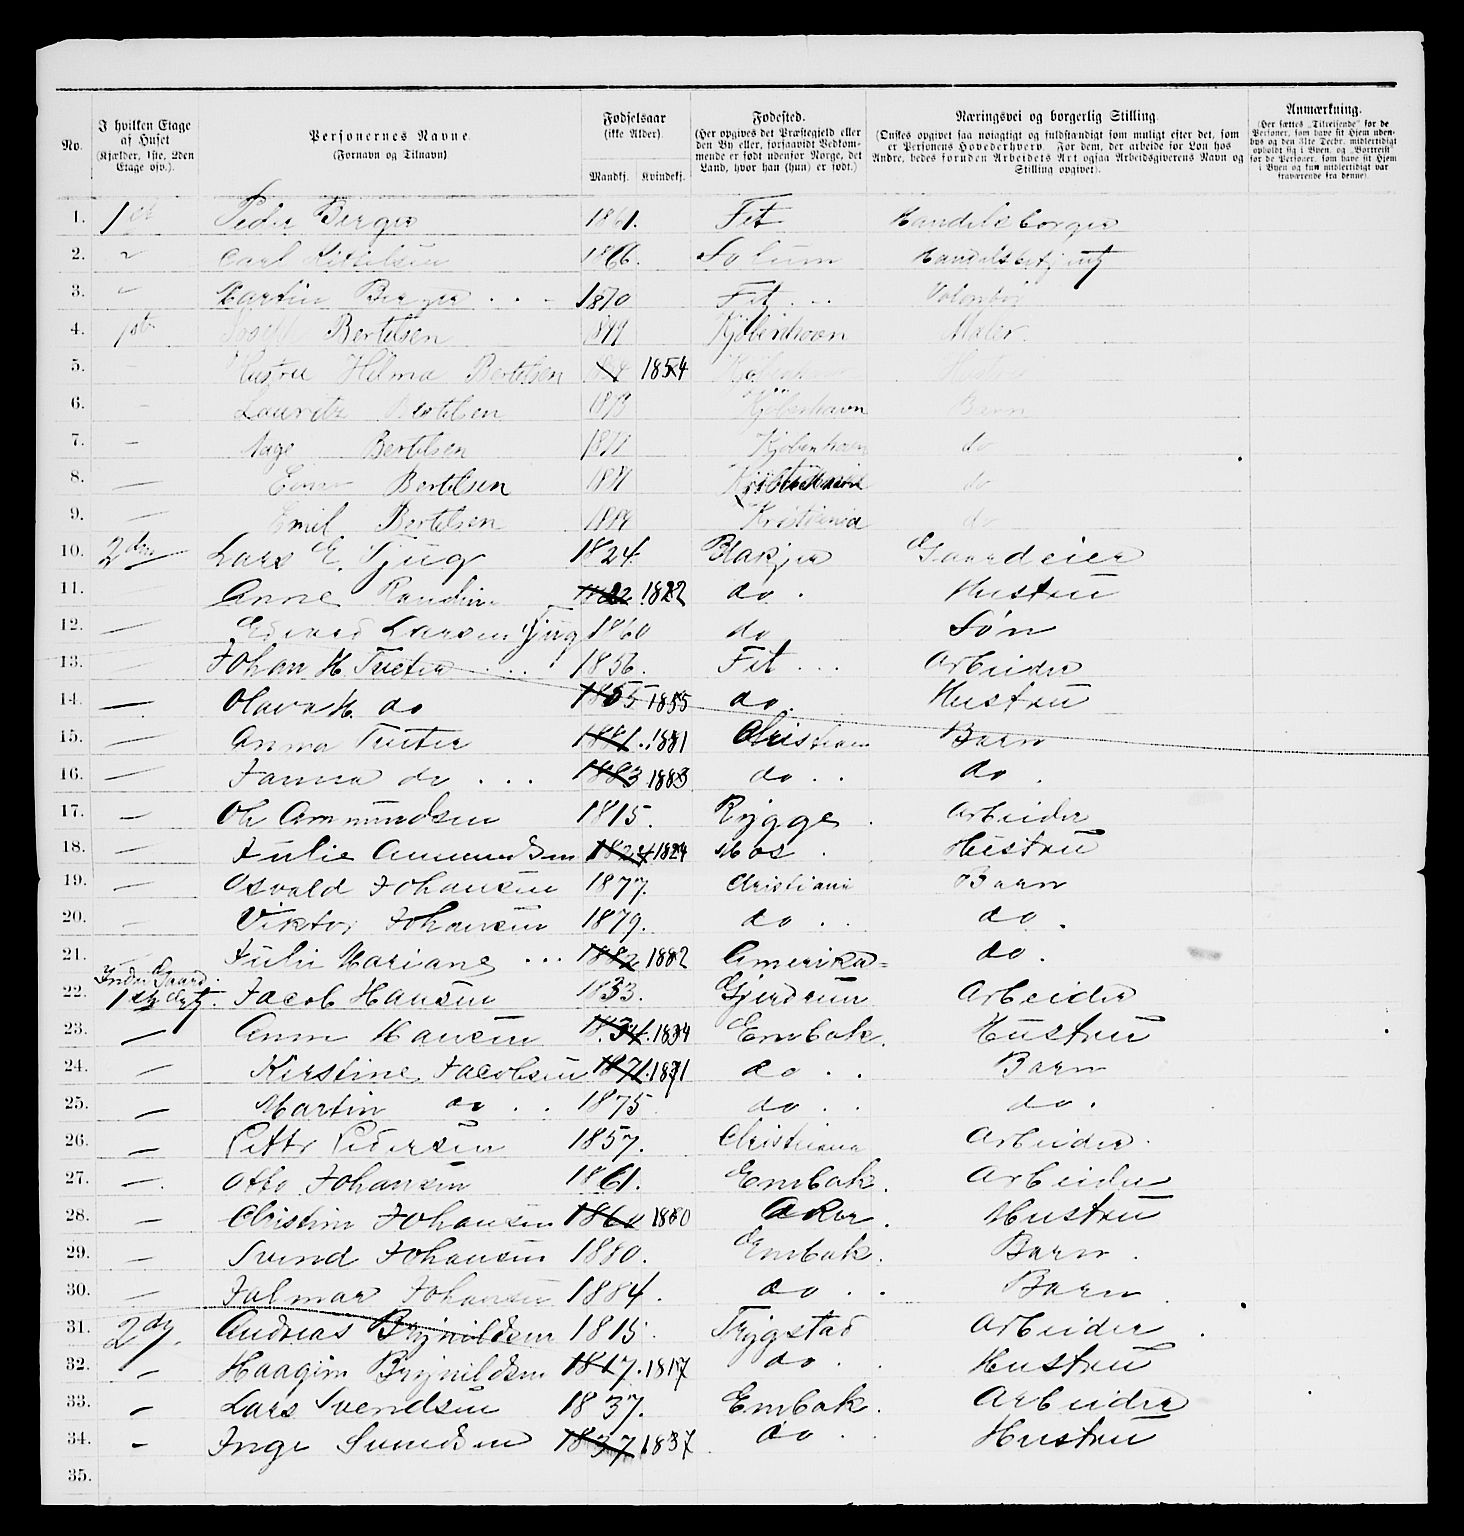 No.
I hvilken Etage af Huset (Kjælder, 1ste, 2den Etage osv.).
Personernes Navne. (Fornavn og Tilnavn)
Fødselsaar (ikke Alder). Mandkj. Kvindekj.
Fødested. (Her opgives det Præstegjeld eller den By eller, forsaavidt Vedkommende er født udenfor Norge, det Land, hvor han (hun) er født.)
Næringsvei og borgerlig Stilling. (Ønskes opgivet saa nøiagtigt og fuldstændigt som muligt efter det, som er Personens Hovederhverv. For dem, der arbeide for Løn hos Andre, bedes foruden Arbeidets Art ogsaa Arbeidsgiverens Navn og Stilling opgivet).
Anmærkning. (Her sættes „Tilreisende“ for de Personer, som have sit Hjem udenbys og den 31te Decbr. midlertidigt opholdt sig i Byen, og „Bortreist“ for de Personer, som have sit Hjem i Byen og kun midlertidigt var fraværende fra denne).
1. 1st Peder Berger 1861. Fet Handelsborger
2. " Carl 1866 Solum Handelsbetjent
3. " Martin Berger 1870 Fet
4. 1st Bertelsen Kjøbenhavn Maler
5. Hustru Hilma Bertelsen 1854
6. - Lauritz Bertelsen Kjøbenhavn Barn
7. - Aage Bertelsen Kjøbenhavn do
8. - Bertelsen do
9. - Emil Bertelsen Kristiania do
10. 2den Lars E. Tjug 1824. Blakjer Gaardeier
11. Anne 1822 1822 do. Hustru
12. - Edvard Larsen Tjug 1860 do Søn
13. Johan H Tveter 1856. Fet Arbeider
14. - Olava H. do 1855 1855 do. Hustru
15. - Anna Tveter 1881. 1881 Christiania Barn
16. - Janna do 1883 1883 do do.
17. - Ole Amundsen 1815. Rygge. Arbeider
18. - Julie Amundsen 1824 1824 Mos. Hustru
19. - Osvald Johansen 1877. Christiania Barn
20. - Viktor Johansen 1879. do do.
21. Julie Mariane 1882 1882 Amerika do.
Indre Gaard.
22. 1st Jacob Hansen 1833. Gjerdrum Arbeider
23. - Anne Hansen 1834. 1834 Enebak. Hustru
24. - Kirstine Jacobsen 1871. 1871 do Barn
25. - Martin do 1875 do do.
26. - Petter Pedersen 1857. Christiania Arbeider.
27. - Otto Johansen 1861. Enebak. Arbeider
28. - Christine Johansen 1860 1860 Aker. Hustru
29. - Svend Johansen 1880. Enebak. Barn.
30. - Jalmar Johansen 1884. do Barn.
31. 2 Andreas Brynildsen 1815. Trygstad Arbeider.
32. - Brynildsen 1817. 1817 do Hustru
33. - Lars Svendsen 1837. Enebak. Arbeider
34. - Inge Svendsen 1837 1837 do Hustru
35.